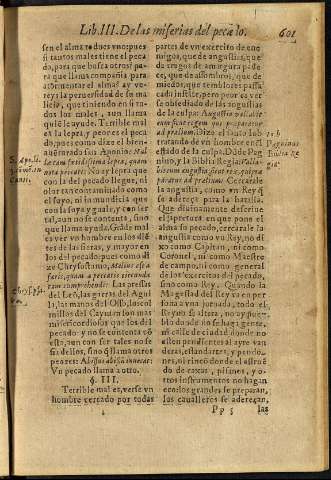 Lib. III. De las miserias del pecado. 601
sen el alma todues vnoepues
si tantos males tiene el peca
do, para que busca otros? pa-
ra que llama compañia para
atormentar el alma? ay ve-
reys la peruersidad de su ma
licia, que siniendo en si to-
dos los males, aun llama
quiē le ayude. Terrible mal
es la lepra, y peores el peca-
do, pues como dize el bien-
auenturado san Aponio. Ma
læ cam fœtidissima lepra, quam
nota peccati: No ay lepra que
con la del pecado llegue, ni
olor tan contaminado como
el suyo, ni inmundicia que
con la suya yguale, y con ser
tal, aun no se contenta, sino
que llama ayuda. Grāde mal
es ver vn hombre en los diē-
tes de las fieras, y mayor en
los del pecado, pues como di-
ze Chrysostomo, Melius est à
feris, quàm à peccatis circunda
tum comprehendi: Las pressas
del Leō, las garras del Agui
la, las manos del Osso, los col
millos del Cayman son mas
misericordiosos que los del
pecado: y no se contenta cō
esto, aun con ser tales no se
fia dellos, sino q̃ llama otros
peores: Abyssus abyssũ inuocat:
Vn pecado llama a otro.
§. III.
Terrible mal es, verse vn
hombre cercado por todas
S. Apo. li.
Cant.
Chrysost.
partes de vn exercito de ene
migos, que de angustias, que
de tragos de amargura pade-
ce, que de assombros, que de
miedo, que temblores passa
cada instãte, pero peor es ver
se obsediado de las angustias
de la culpa: Angustia vallabit
eum sicut regem qui præparatur
ad prælium. Dixo el santo Iob
tratando de vn hombre en el
estado de la culpa. Dōde Pag
nino, y la Biblia Regia: Valla
bit eum angustia sicut rex, qui præ
paratur ad prælium. Cercarale
la angustia, como vn Rey q̃
se adereça para la batalla.
Que diuinamente descriue
el aprieto en que pone el
alma su pecado, cercarale la
angustia como vn Rey, no dize
como Capitan, ni como
Coronel, ni como Maestre
de campo, ni como general
de los exercitos del pecado,
sino como Rey. Quando la
Magestad del Rey va en per
sona a vna jornada, todo el
Reyno se altera, no ay pue-
blo donde no se haga gente,
ni calle de ciudad donde no
esten pendientes al ayre van
deras, estandartes, y pendo-
nes, ni rincon donde el estruē
do de caxas, pifanos, y o-
tros instrumentos no hagan
eco: los grandes se preparan,
los caualleros se adereçan,
Iob
Pagninus
Biblia Re
gia.
Pp 5 las